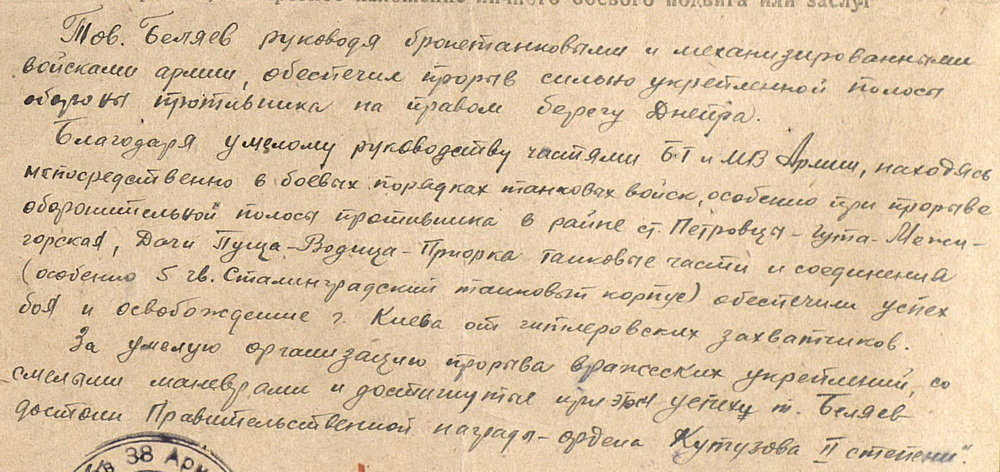 изложение личного боевого подвига или заслуг
Тов. Беляев руководя бронетанковыми и механизированными
войсками армии, обеспечил прорыв сильно укрепленной полосы
обороны противника на правом берегу Днепра.
Благодаря умелому руководству частями БТ и МВ Армии, находясь
непосредственно в боевых порядках танковых войск, особенно при прорыве
оборонительной полосы противника в районе ст. Петровцы-Гута-Межи-
горская, Дачи Пуща-Водица-Приорка танковые части и соединения
(особенно 5 гв. Сталинградский танковый корпус) обеспечили успех
боя и освобождение г. Киева от гитлеровских захватчиков.
За умелую организацию прорыва вражеских укреплений, со
смелыми маневрами и достигнутые при этом успехи т. Беляев
достоин Правительственной награды-ордена Кутузова II степени"
38